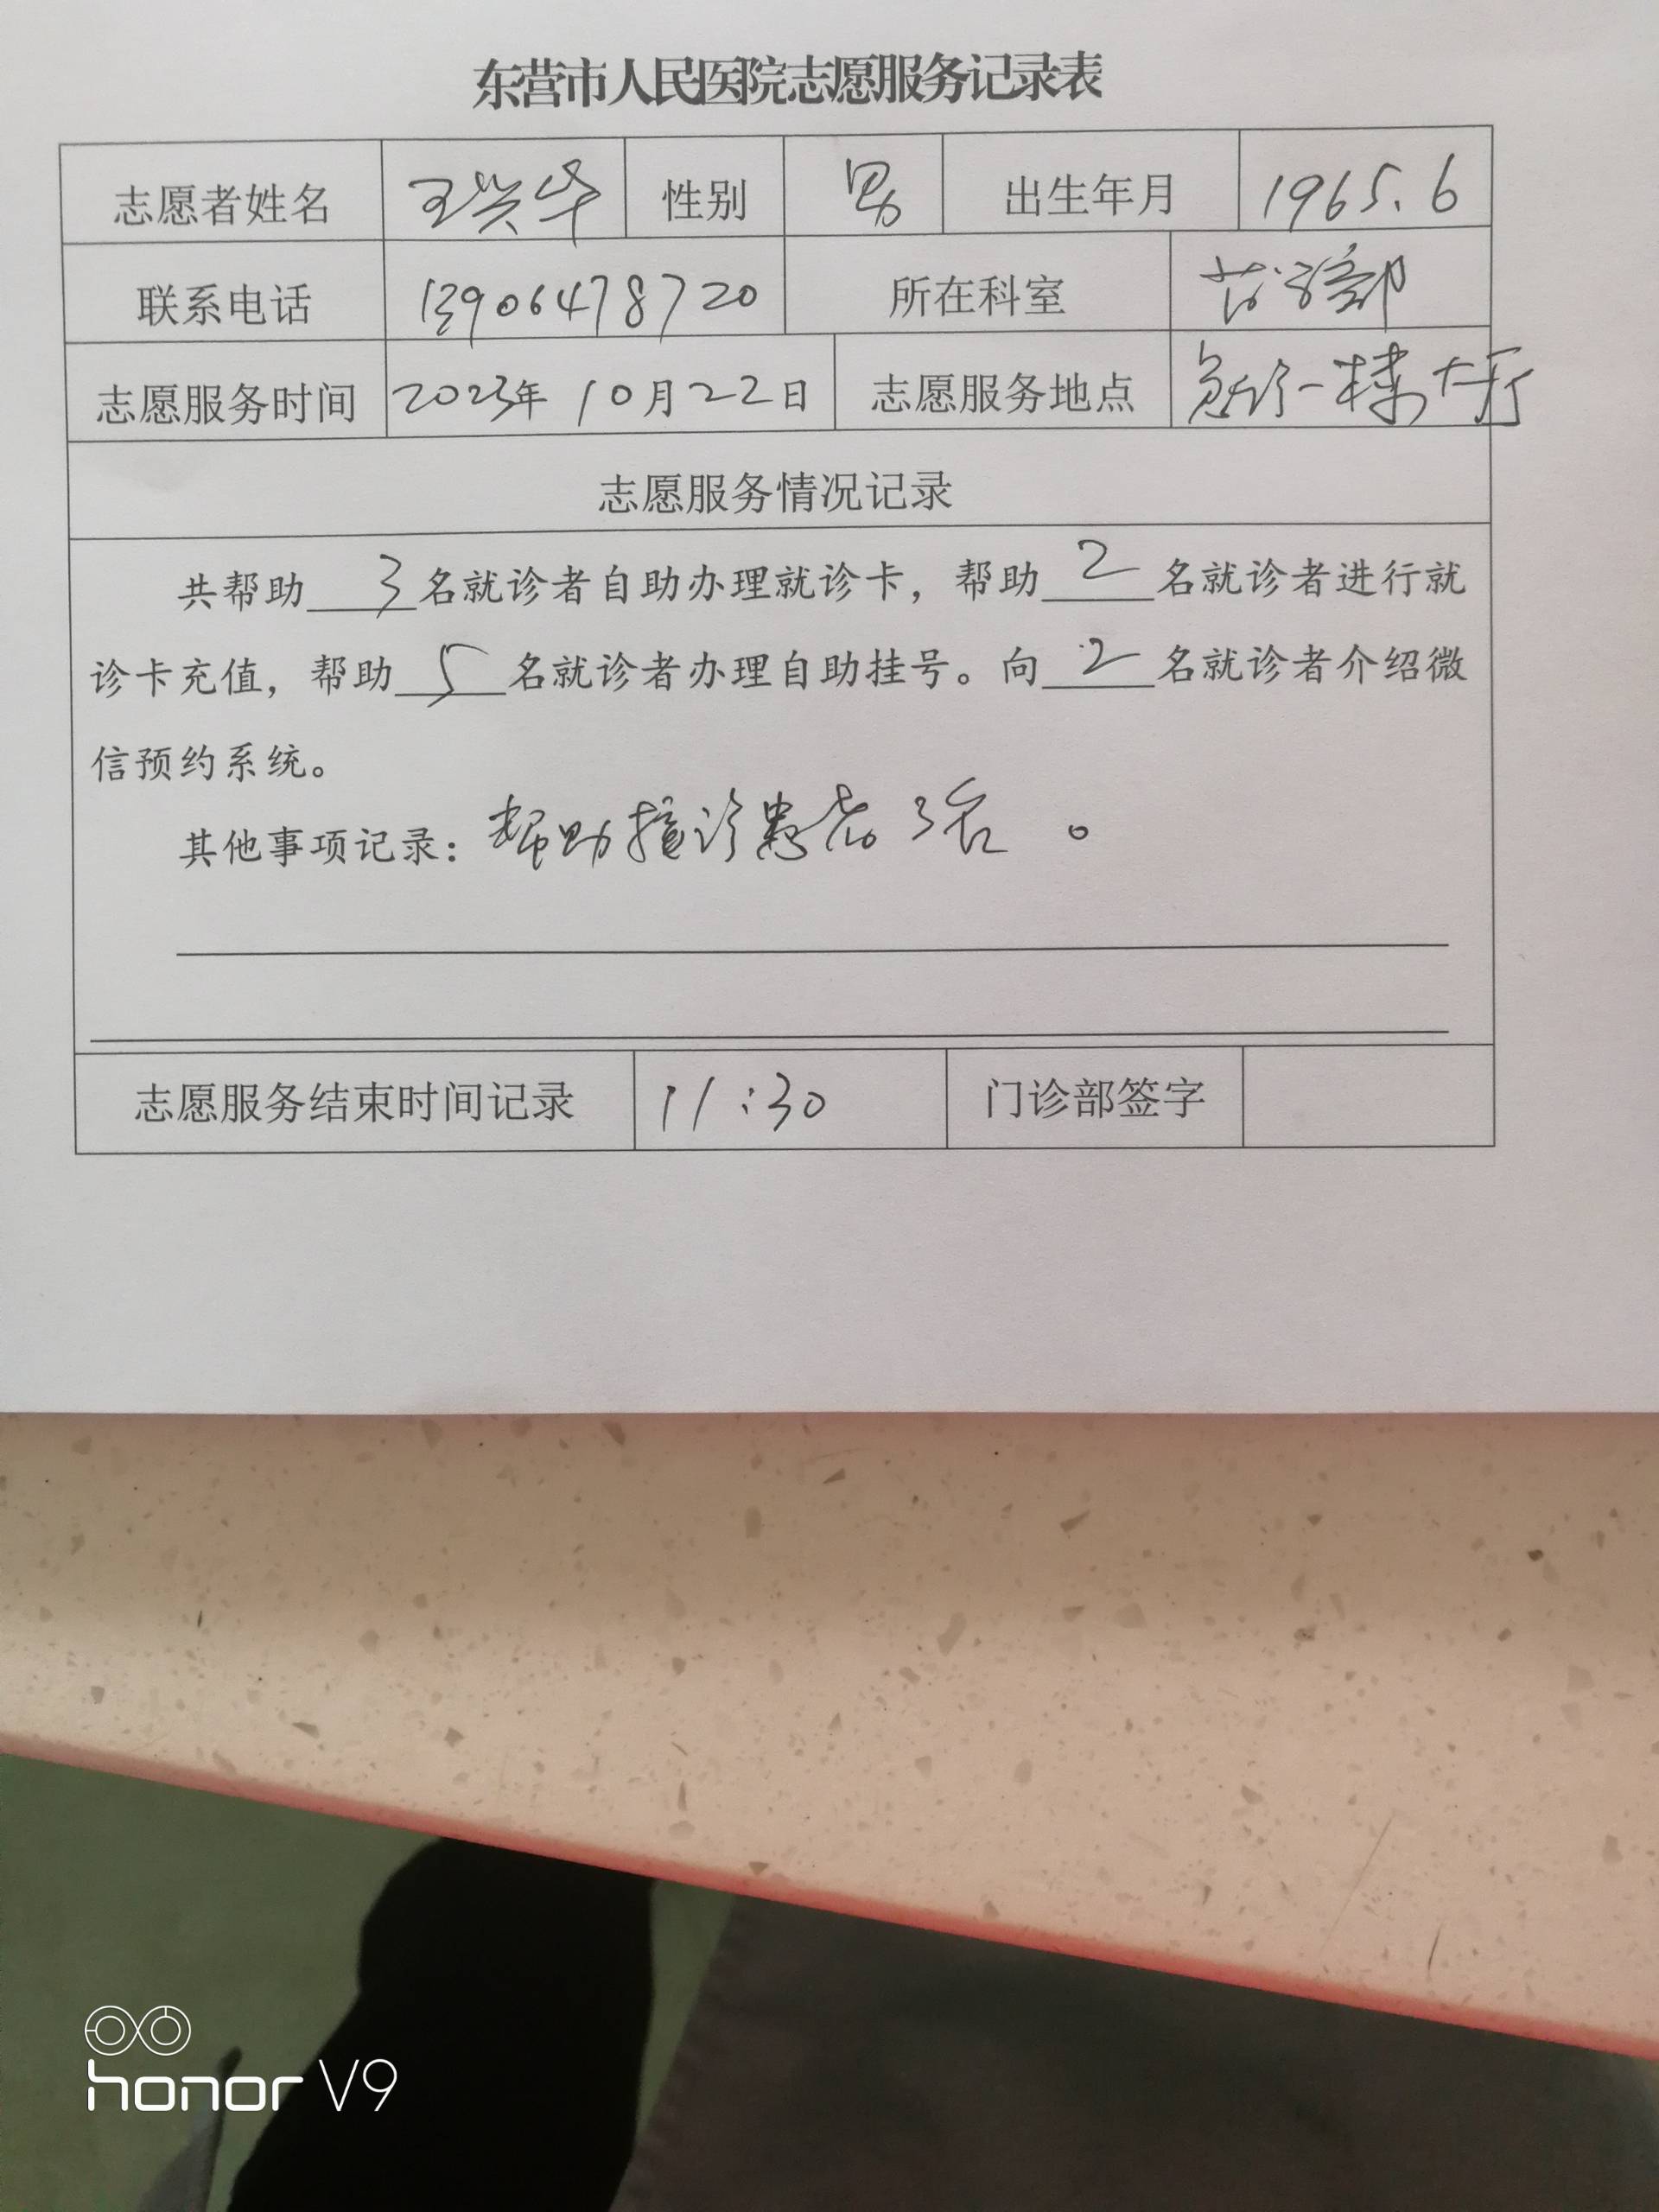 东营市人民医院志愿服务记录表
志愿者姓名 王兴华 性别 男 出生年月 1965.6
联系电话 13906478720 所在科室
志愿服务时间 2023年10月22日 志愿服务地点 急诊一楼大厅
志愿服务情况记录
共帮助3名就诊者自助办理就诊卡，帮助2名就诊者进行就
诊卡充值，帮助5名就诊者办理自助挂号。向2名就诊者介绍微
信预约系统。
其他事项记录：帮助接诊患者3名。
志愿服务结束时间记录 11:30 门诊部签字
honor V9